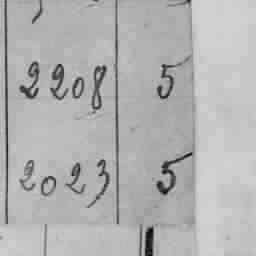 2208 5
2023 5